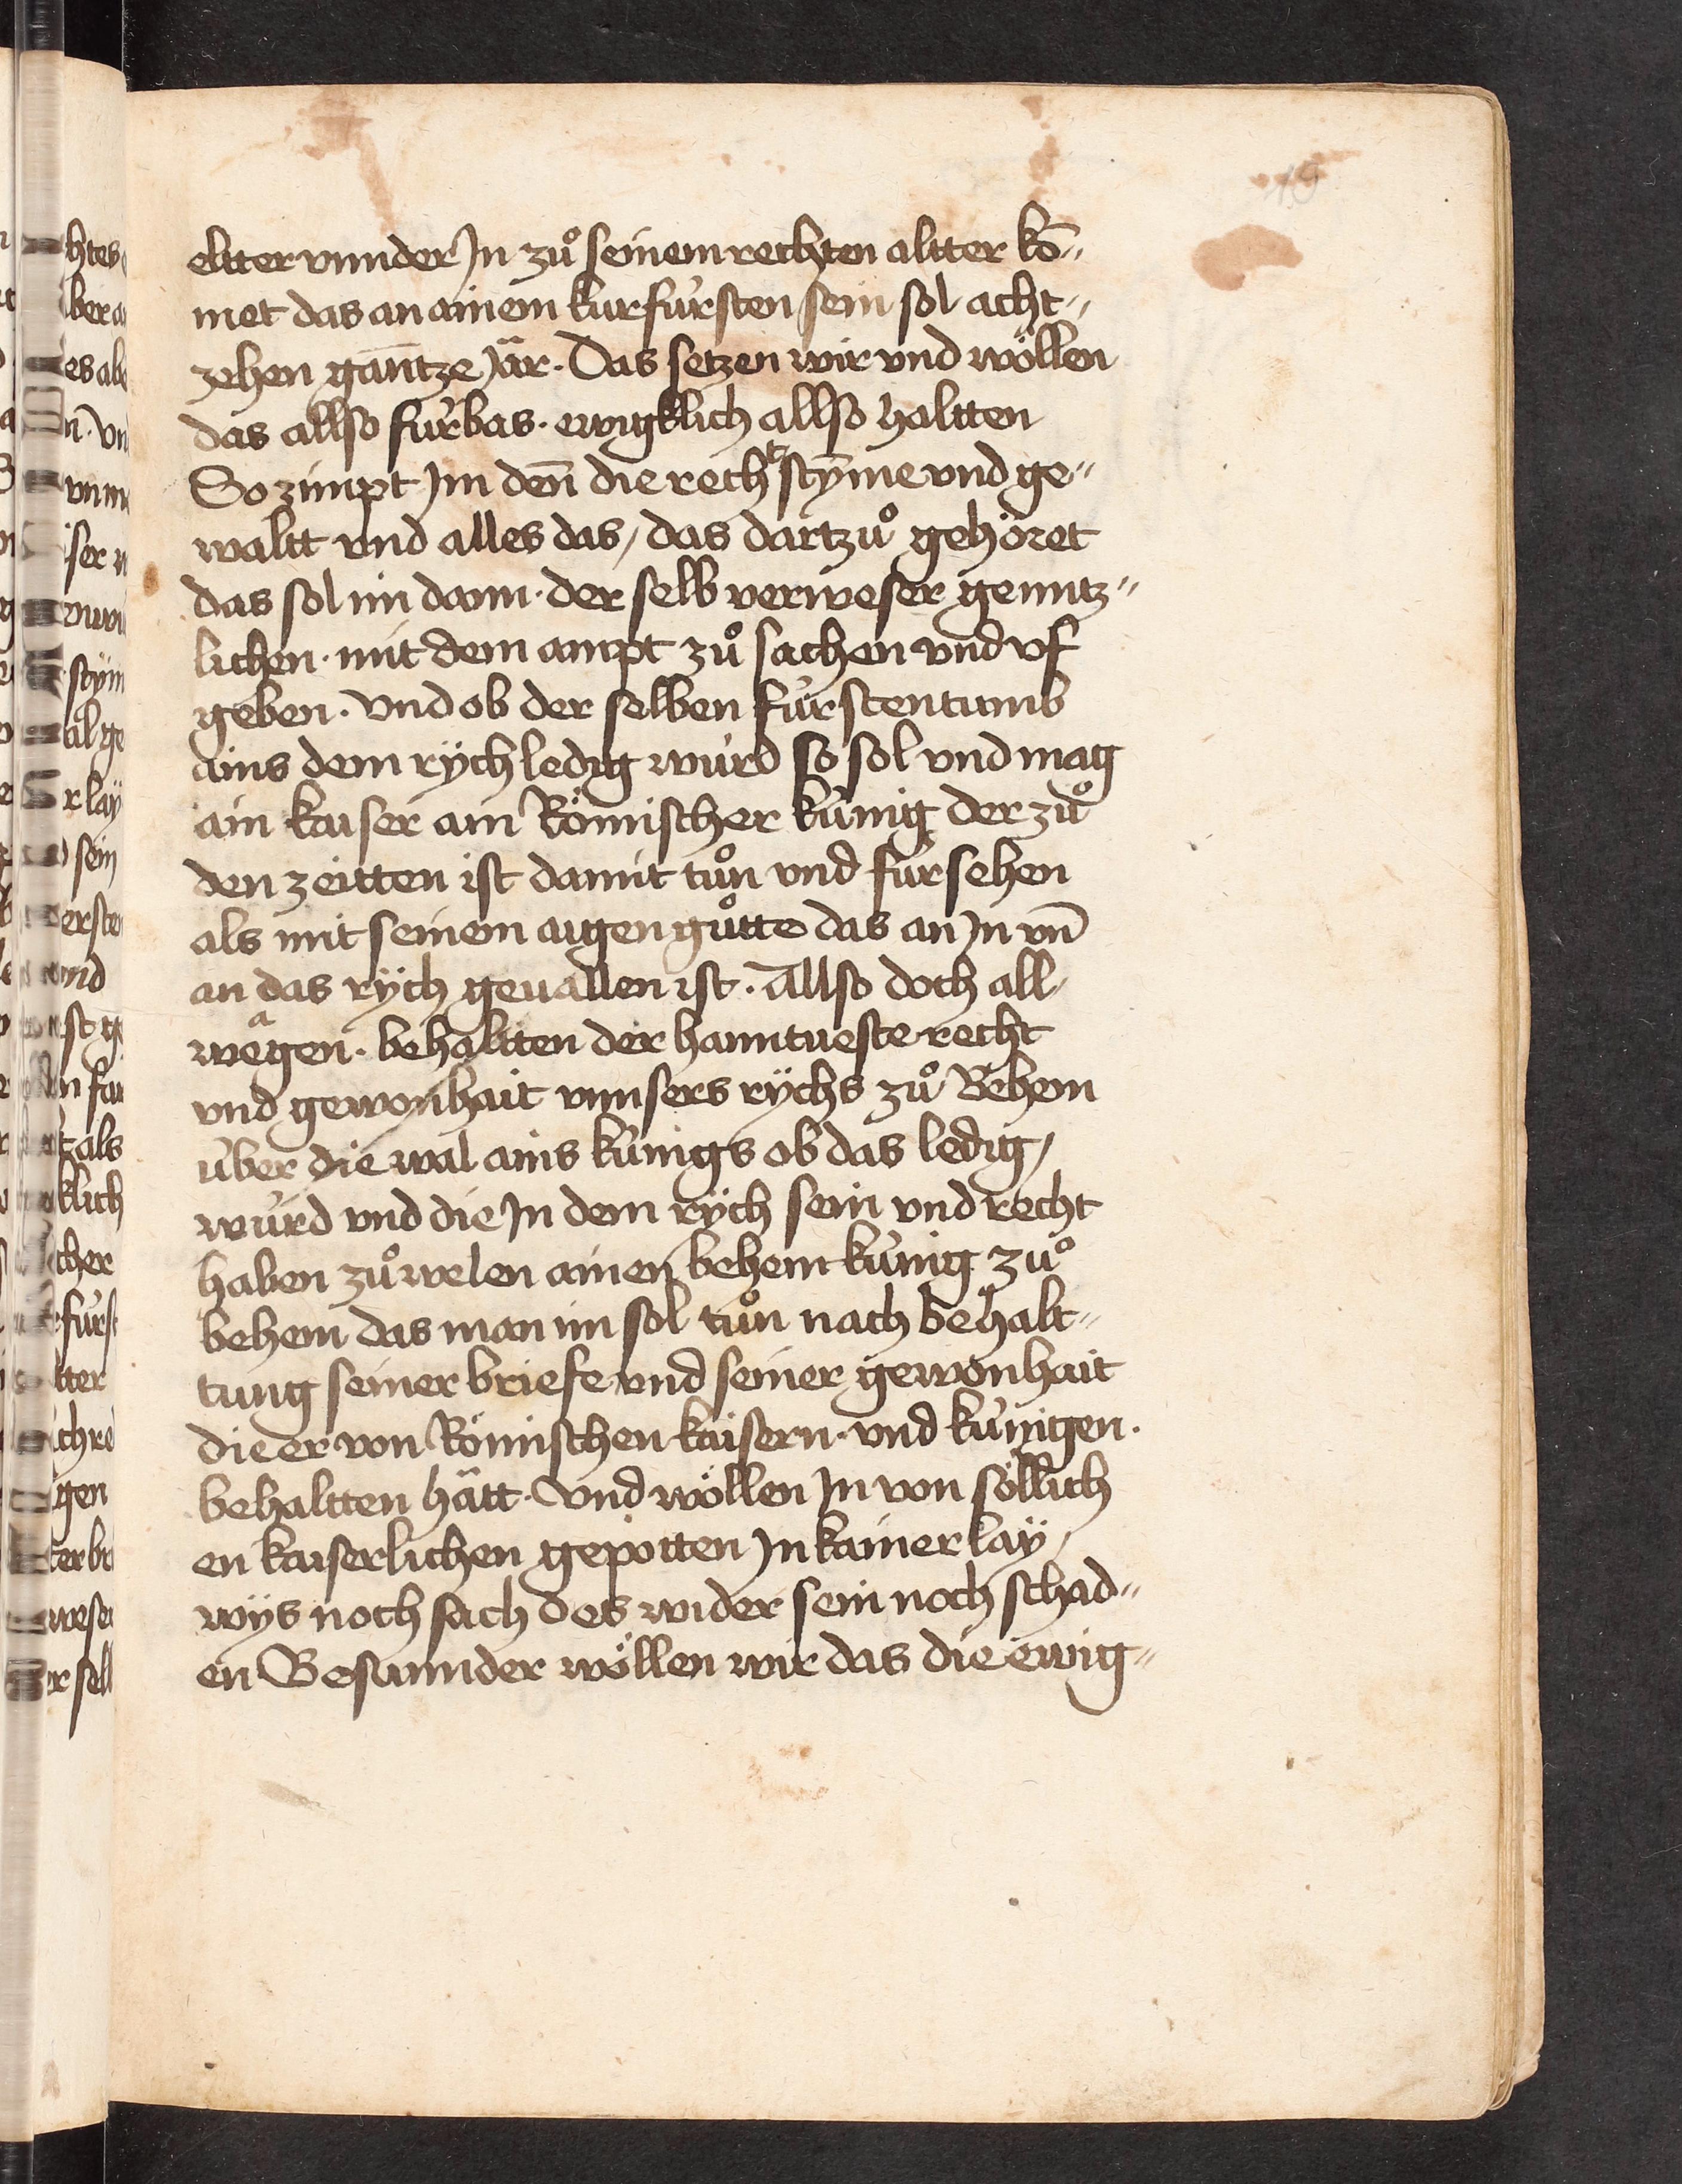 19
eltter vnnder Jn zuͦ seinem rechten altter kō⸗
met das an ainem kurfürsten sein sol acht⸗
zehen gantze Jär. Das setzen wir vnd wöllen
das allso fürbas. ewigklich allso haltten
So zimpt Jm den̄ die recht stÿme vnd ge⸗
waltt vnd alles das / das dartzuͦ gehöret
das sol im dann. der selb verweser genntz⸗
lichen. mit dem ampt zuͦ sachen vnd vf
geben. vnd ob der selben fürstentumb
ains dem rÿch ledig würd so sol vnd mag
ain kaiser ain Römischer künig der zuͦ
den zeitten ist damit tuͦn vnd fürsehen
als mit seinem aigen guͦtte das an Jn vn̄
an das rÿch geuallen ist. Allso doch all /
wegen. behaltten der hanntueste recht
vnd gewonhait vnnsers rÿchs zuͦ Behem
über die wal ains künigs ob das ledig /
würd vnd die Jn dem rÿch sein vnd recht
haben zuͦ welen ainen behem künig zuͦ
behem das man im sol tuͦn nach behalt⸗
tung seiner briefe vnd seiner gewonhait
die er von Römischen kaisern. vnd künigen.
behaltten hätt. vnd wöllen Jn von söllich
en kaiserlichen gepotten Jn kainer laÿ /
wÿs noch sach des wider sein noch schad⸗
en Besunnder wöllen wir das die ewig⸗